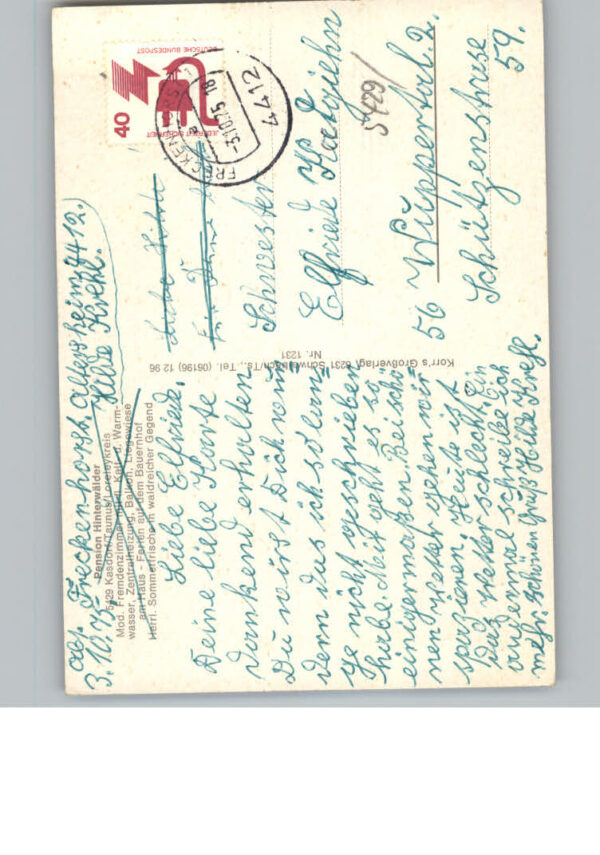 abs. Freckenhorst Altersheim 4412.
3.10.75. Hilde Krehl.
Pension Hinterwälder
5429 Kasdorf/Taunus/Loreleykreis
Mod. Fremdenzimmer, Kalt- u. Warm-
wasser, Zentralheizung, Balkon, Liegewiese
am Haus - Ferien auf dem Bauernhof
Herrl. Sommerfrische in waldreicher Gegend
Liebe Elfriede.
Deine liebe Karte
dankend erhalten
Du wirst Dich wun=
dern das ich so lan=
ge nicht geschrieben
habe. Mir geht es so
einigermaßen Bei schö=
nen wetter gehen wir
spazieren Heute ist
das wetter schlecht. Ein
andermal schreibe ich
mehr. schönen Gruß Hilde Krehl.
Korr's Großverlag, 6231 Schwalbach/Ts., Tel. (06196) 12 96
Nr. 1231
DEUTSCHE BUNDESPOST
JEDERZEIT SICHERHEIT
40
FRECKENHORST
-3.10.75-18
4412
Schwester
Elfriede
5429/
56 Wuppertal. 2.
Schützenstrase
59.